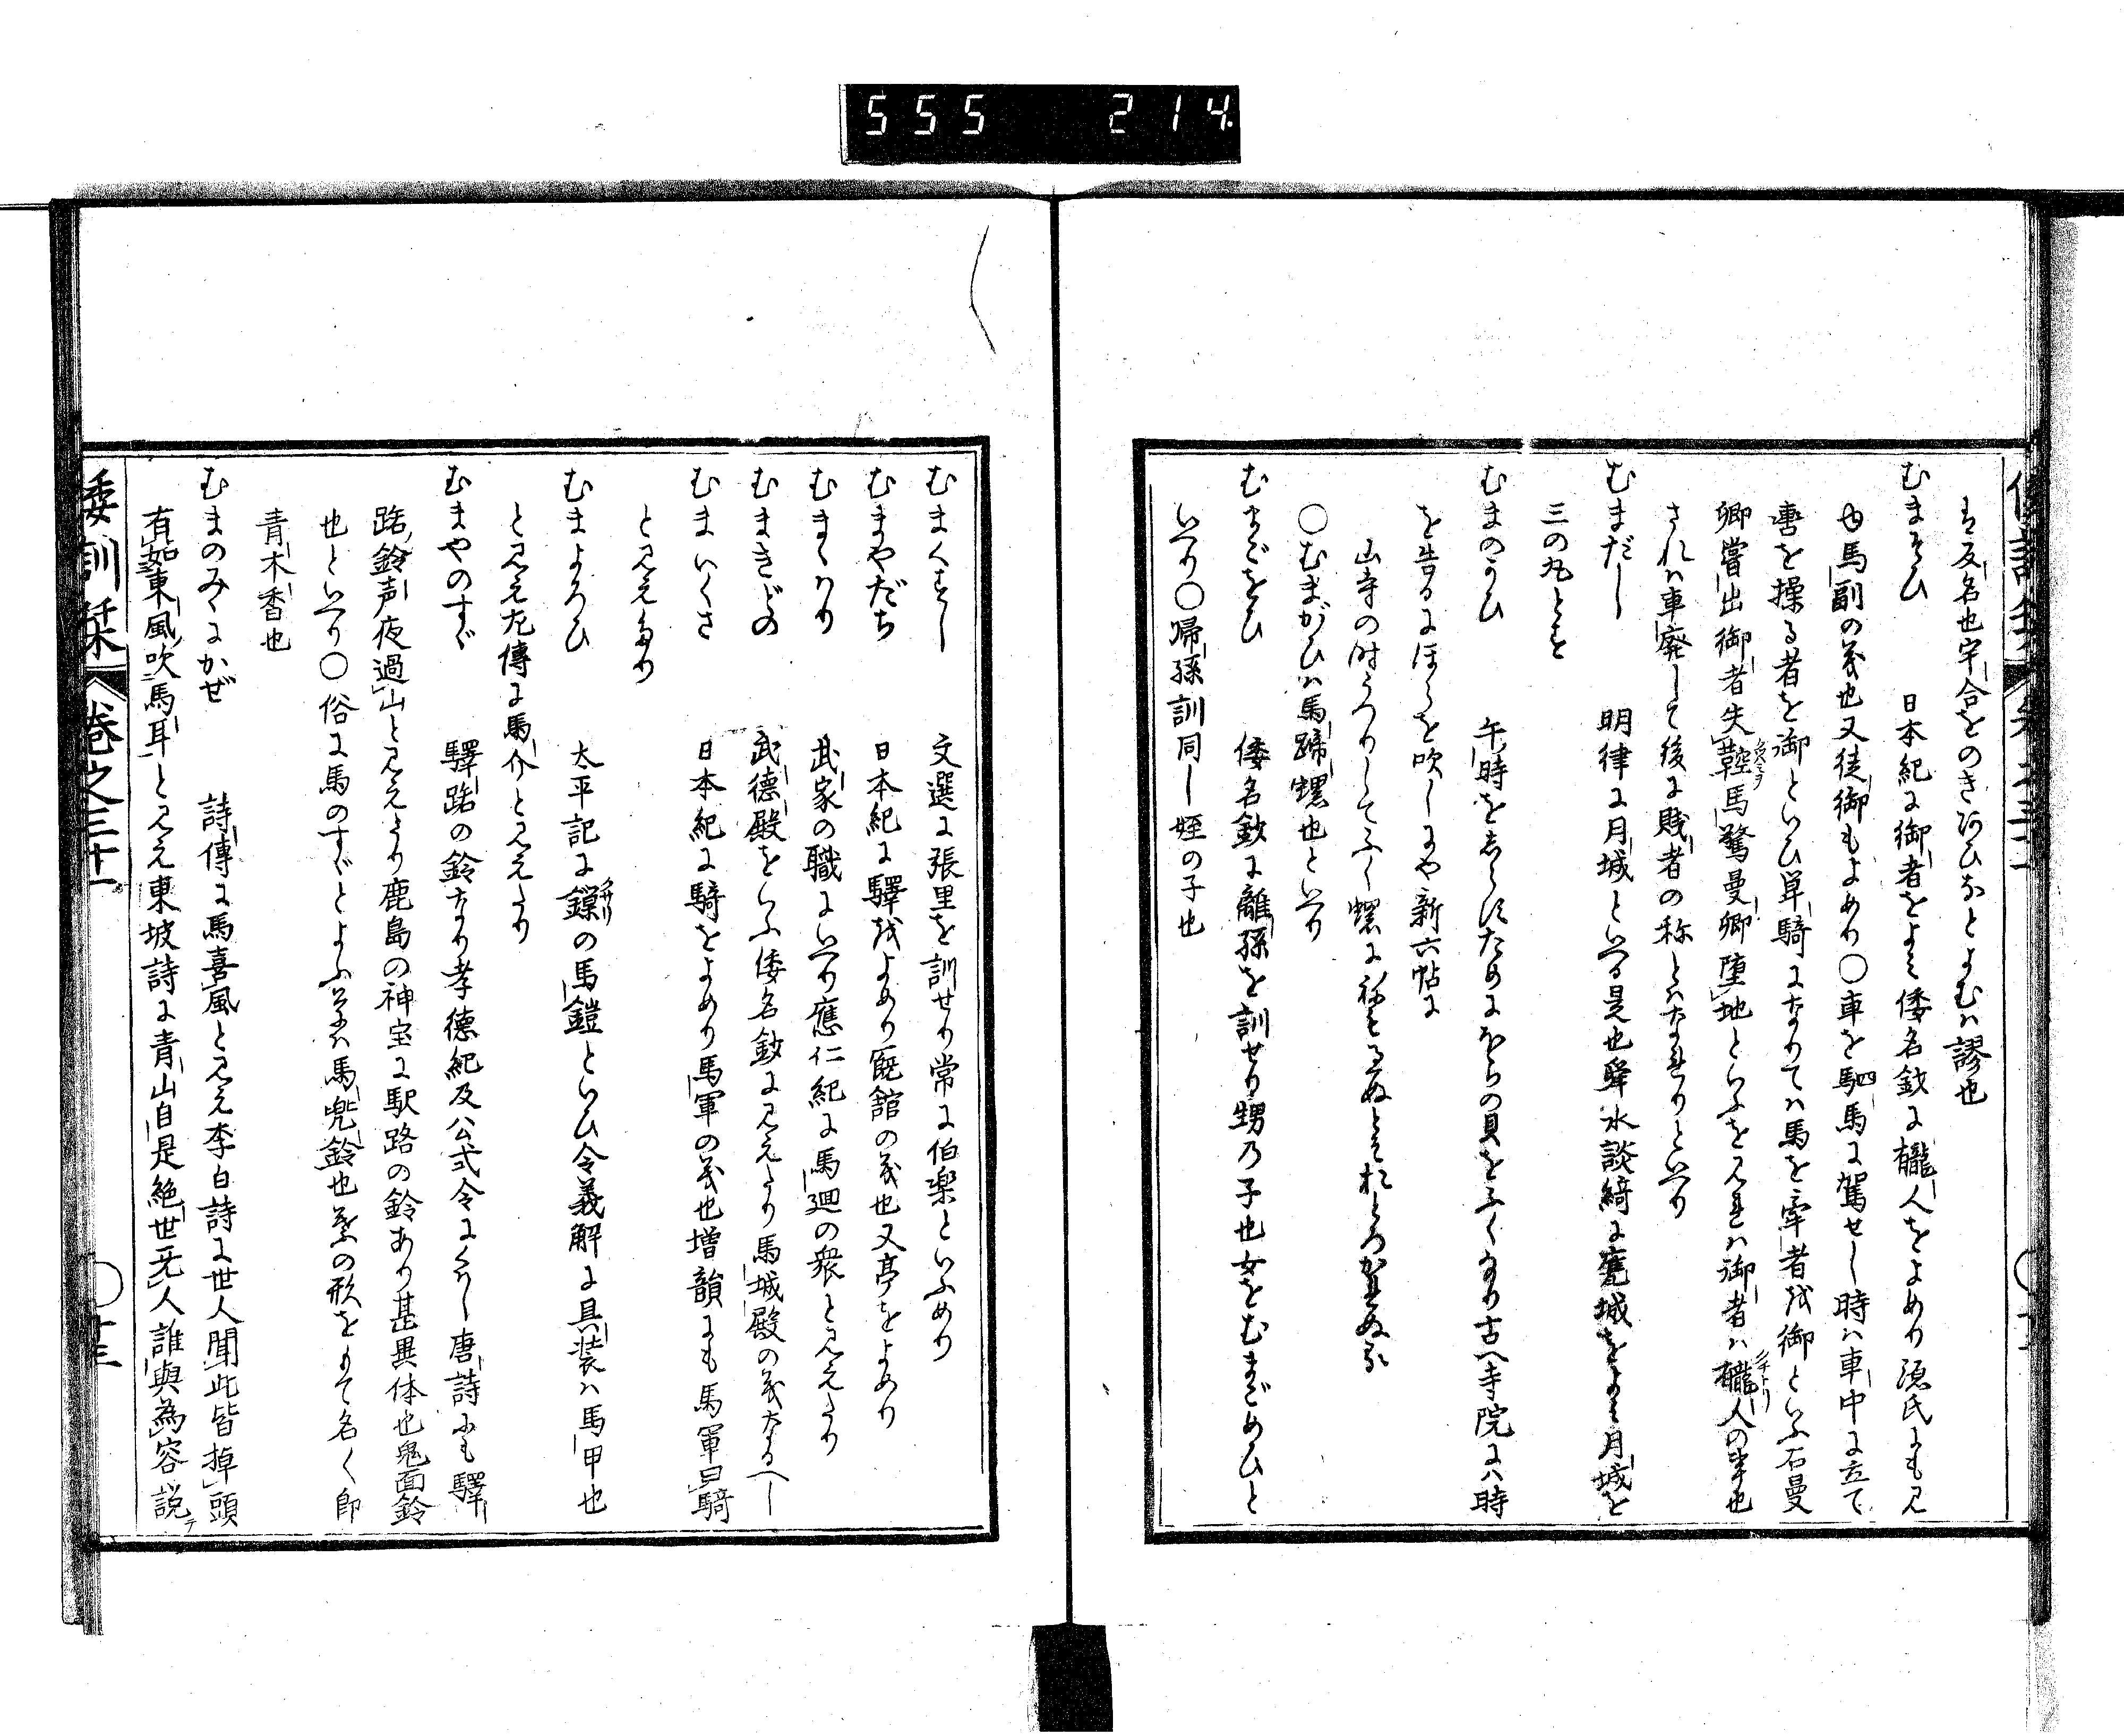 555 214
は反名也宇合をのきあひなとよむハ謬也
むまそひ 日本紀に御者をよミ倭名鈔に龓人をよめり源氏にも見
ゆ馬副の義也又徒御もよめり○車を駟馬に駕せし時ハ車中に立て
轡を操る者を御といひ単騎になりてハ馬を牽者を御といふ石曼
卿嘗出御者失鞚馬驚曼卿堕地といふを見れハ御者ハ龓人の事也
されハ車廃して後に賤者の称とハなれりといへり
むまだし 明律に月城といへる是也 水談綺に甕城をよミ月城を
三の丸とす
むまのかひ 午時をしらせんためにほらの貝をふくなり古へ寺院に八時
を告るにほらを吹しにや新六帖に
山寺の時うつりしてふく螺に
○むまがひハ馬蹄螺也といへり
むまごをひ 倭名鈔に離孫を訓せり甥乃子也女をむまごめひと
いへり○帰孫訓同し姪の子也
むまくすし 文選に張里を訓せり常に伯楽といふめり
むまやだち 日本紀に驛をよめり厩舘の義也又亭をよめり
むまゝハり 武家の職にいへり應仁紀に馬廻の衆と見えたり
むまきどの 武徳殿をいふ倭名鈔に見えたり馬城殿の義なるへし
むまいくさ 日本紀に騎をよめり馬軍の義也増韻にも馬軍曰騎
と見えたり
むまよろひ 太平記に鏁の馬鎧といひ令義解に具装ハ馬甲也
と見え左傳に馬介と見えたり
むまやのすゞ 驛路の鈴なり孝徳紀及公式令にくハし唐詩にも驛
路鈴声夜過山と見えたり鹿島の神宝に駅路の鈴あり甚異体也鬼面鈴
也といへり○俗に馬のすゞとよふ草ハ馬兜鈴也葉の形をもて名く即
青木香也
むまのみゝにかぜ 詩傳に馬喜風と見え李白詩に世人聞此皆掉頭
有如東風吹馬耳と見え東坡詩に青山自是絶世无人誰與為容説
倭訓栞 巻之三十一 ○十三